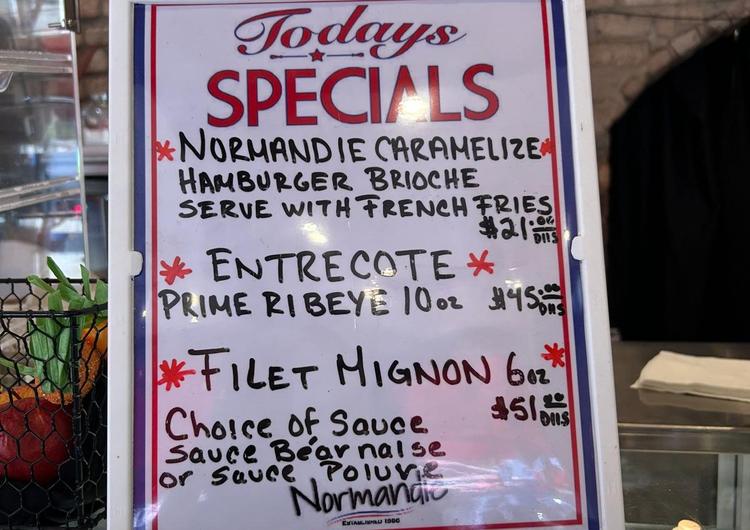 Todays
SPECIALS
* NORMANDIE CARAMELIZE *
HAMBURGER BRIOCHE
SERVE WITH FRENCH FRIES
$21.00 Dlls
* ENTRECOTE *
PRIME RIBEYE 10oz $45.00 Dlls
* FILET MIGNON 6oz *
$51.00 Dlls
Choice of Sauce
Sauce Béarnaise
or Sauce Poivrie
Normandie
ESTABLISHED 1986